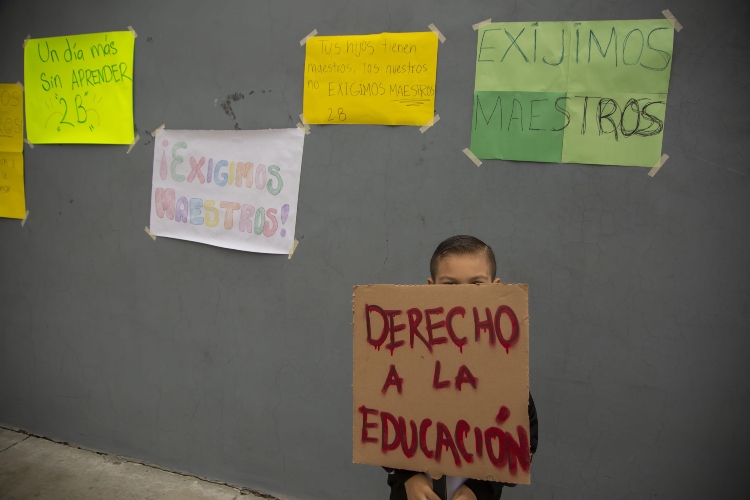 Un día más
Sin APRENDER
2B
¡EXIGIMOS
MAESTROS!
Tus hijos tienen
maestros, los nuestros
no EXIGIMOS MAESTROS
2.B
EXIJIMOS
MAESTROS
DERECHO
A LA
EDUCACIÓN